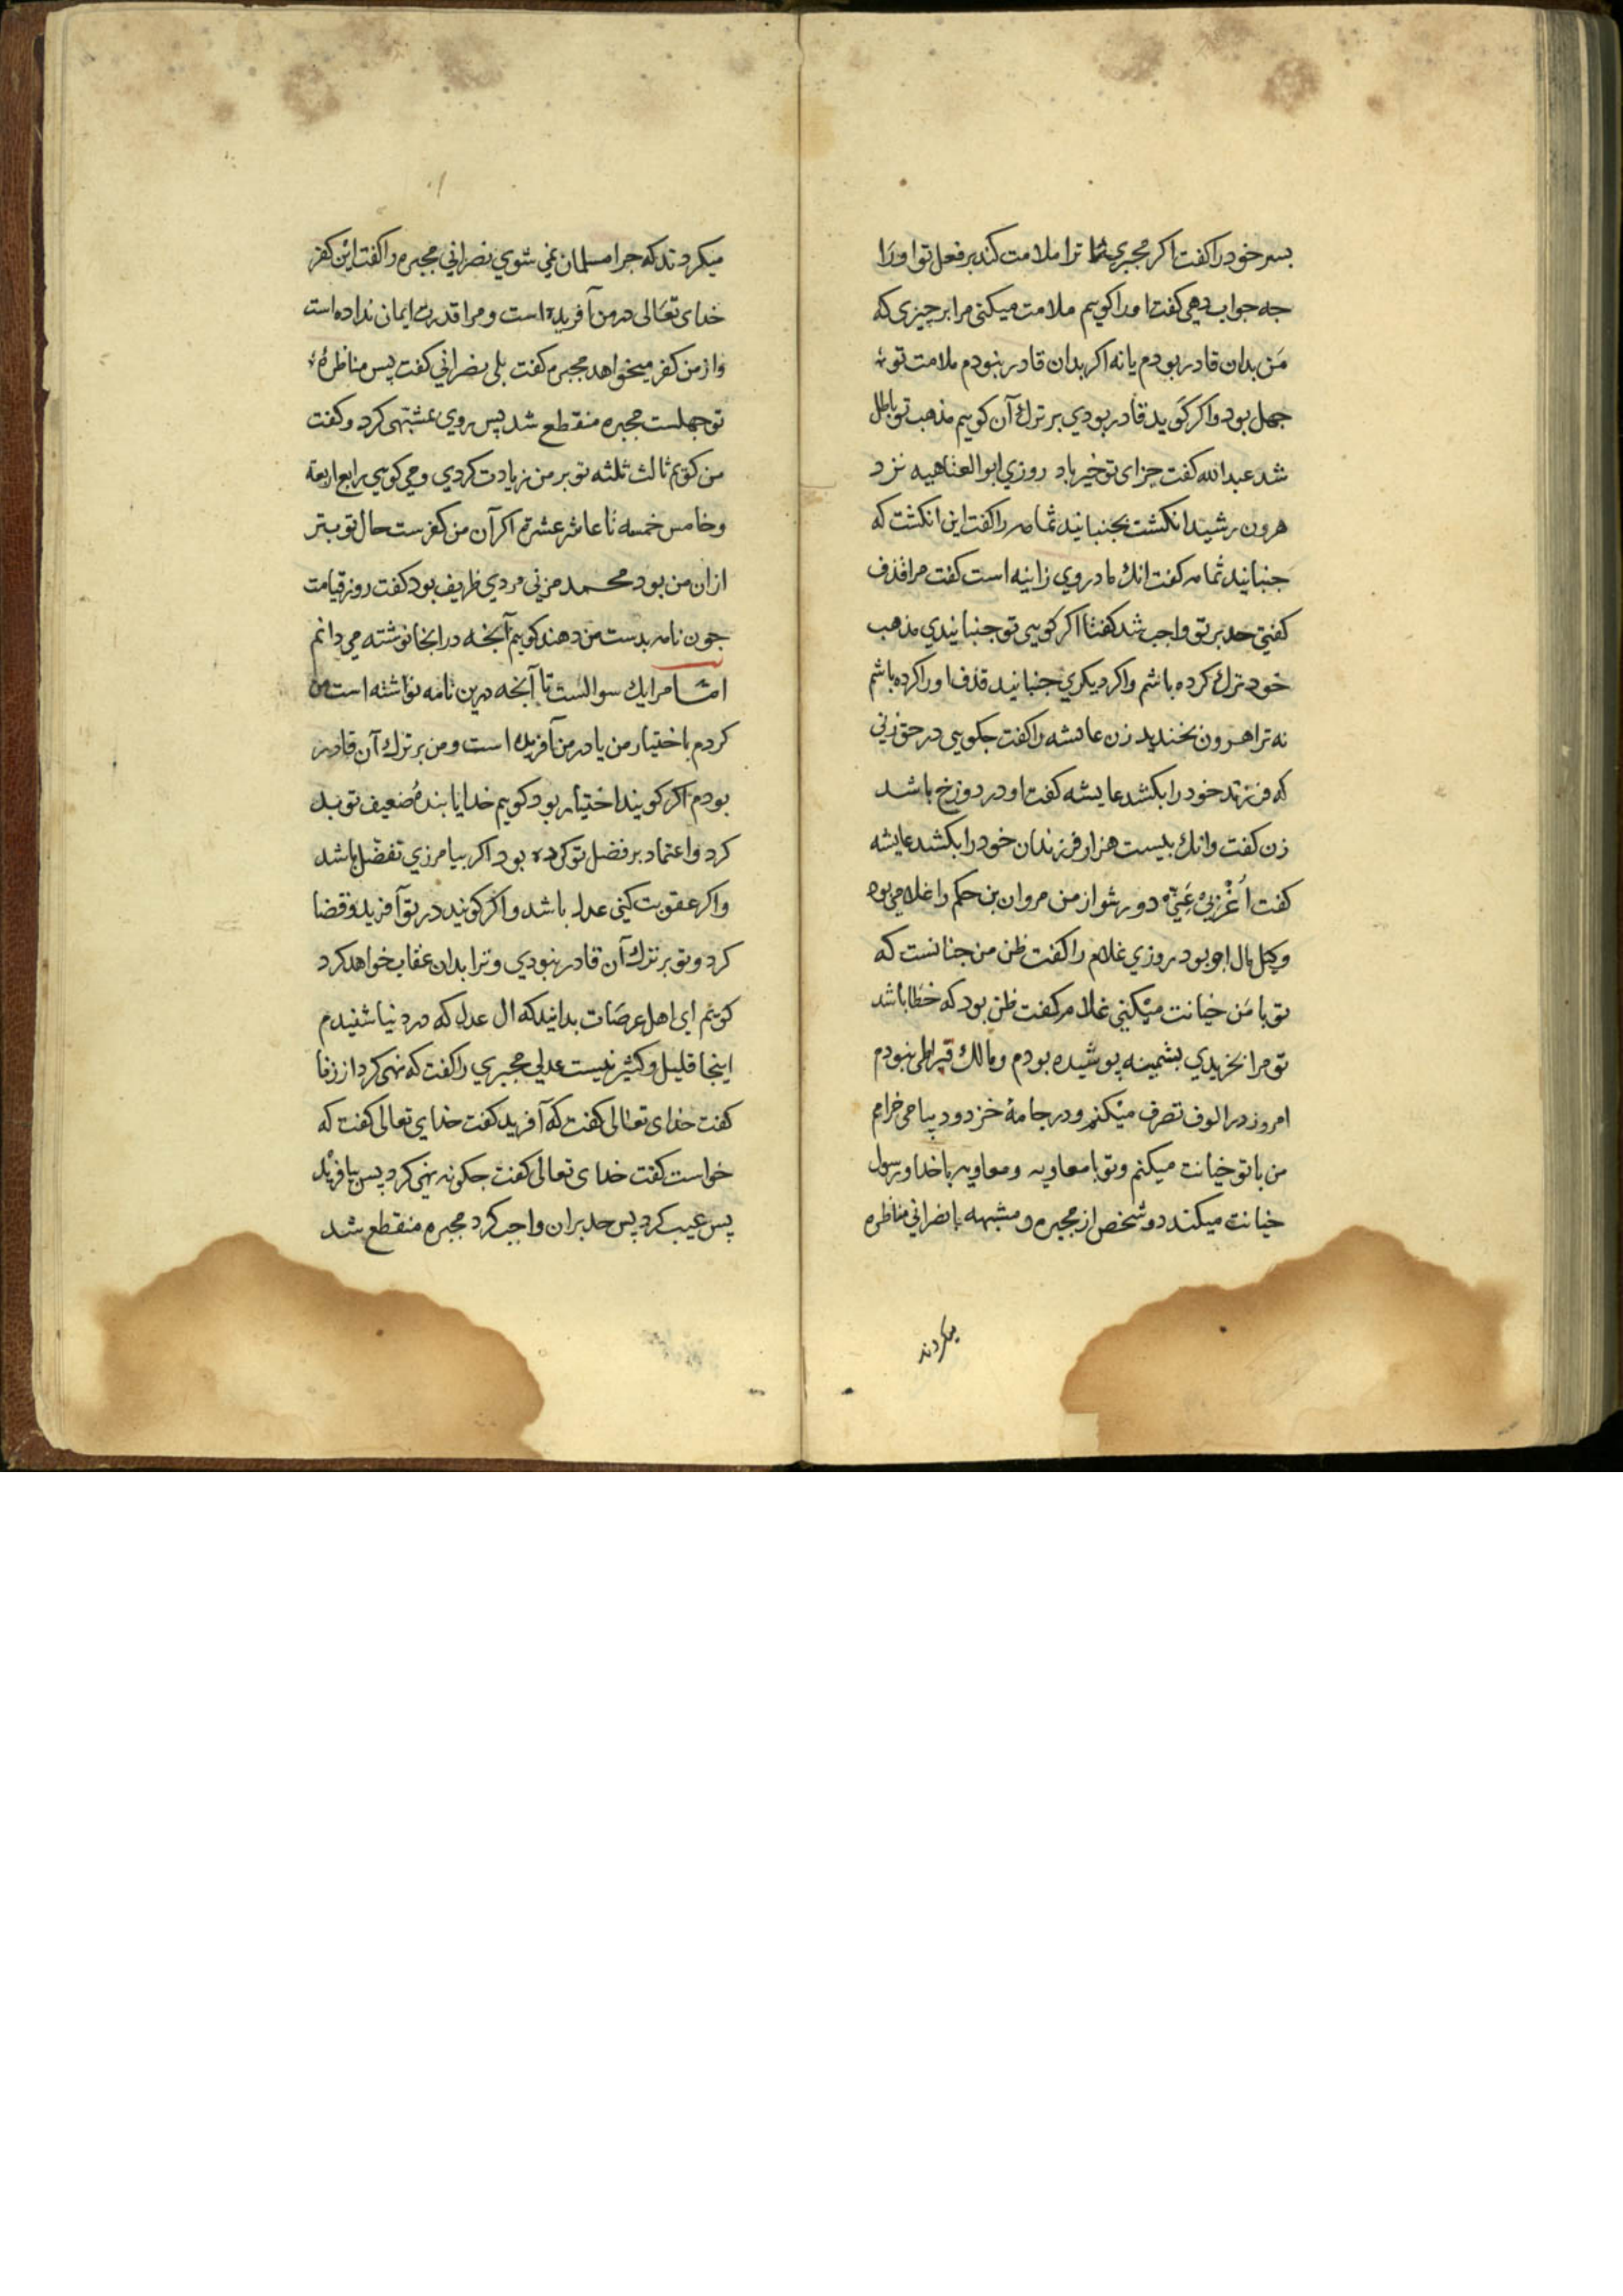 بسر خود را كفت اكر مجبرى ترا ملامت كند بر فعل تو او را
جه جواب دهى كفت او را كويم ملامت ميكنى مرا بر چيزى كه
من بدان قادر بودم يا نه اكر بدان قادر نبودم ملامت تو
جهل بود و اكر كويد قادر بودي بر ترك آن كويم مذهب تو باطل
شد عبدالله كفت جزاى تو خير باد روزي ابو العتاهيه نزد
هرون رشيد انكشت بجنبانيد ثمامه را كفت اين انكشت كه
جنبانيد ثمامه كفت انك مادر وي زانيه است كفت مرا قذف
كفتي حد بر تو واجب شد كفتا اكر كويي تو جنبانيدي مذهب
خود ترك كرده باشم و اكر ديكري جنبانيد قذف او را كرده باشم
نه ترا هرون بخنديد زن عايشه را كفت جكويي در حق زني
كه فرزند خود را بكشد عايشه كفت او در دوزخ باشد
زن كفت وانك بيست هزار فرزندان خود را بكشد عايشه
كفت اُغْرُبِيْ عَنِّيْ دور شو از من مروان بن حكم را غلامي بود
وكيل مال او بود روزي غلام را كفت ظن من جنانست كه
تو با من خيانت ميكني غلام كفت ظن بود كه خطا باشد
تو مرا بخريدي بشمينه پوشيده بودم و مالك قيراطى نبودم
امروز در الوف تصرف ميكنم و در جامهٔ خز و ديبا مى خرامم
من با تو خيانت ميكنم و تو با معاويه و معاويه با خدا و رسول
خيانت ميكند دو شخص از مجبره و مشبهه با نصرانى مناظره
ميكردند
ميكردند كه جرا مسلمان نمي شوي نصراني مجبره را كفت اين كفر
خداى تعالى در من آفريده است و مرا قدرت ايمان نداده است
و از من كفر ميخواهد مجبره كفت بلى نصراني كفت پس مناظرهٔ
تو جهلست مجبره منقطع شد پس روي بمشبهى كرد و كفت
من كويم ثالث ثلثه تو بر من زيادت كردي و مي كويي رابع اربعة
و خامس خمسه تا عاشر عشره اكر آن من كفرست حال تو بتر
از ان من بود محمد مزنى مردي ظريف بود كفت روز قيامت
جون نامه بدست من دهند كويم آنجه در اينجا نوشته مي دانم
اما مرا يك سوالست تا آنجه درين نامه نوشته است من
كردم باختيار من يا در من آفريده است و من بر ترك آن قادر
بودم اكر كويند اختيار بود كويم خدايا بندهٔ ضعيف تو بد
كرد و اعتماد بر فضل تو كرده بود اكر بيامرزي تفضل باشد
و اكر عقوبت كنى عدل باشد و اكر كويند در تو آفريد و قضا
كرد و تو بر ترك آن قادر نبودي و ترا بدان عقاب خواهد كرد
كويم اى اهل عرصات بدانيد كه ال عدل كه در دنيا شنيدم
اينجا قليل و كثير نيست عدلي مجبري را كفت كه نهى كرد از زنا
كفت خداى تعالى كفت كه آفريد كفت خداي تعالى كفت كه
خواست كفت خداى تعالى كفت جكونه نهي كرد پس بيافريد
پس عيب كرد پس حد بران واجب كرد مجبره منقطع شد